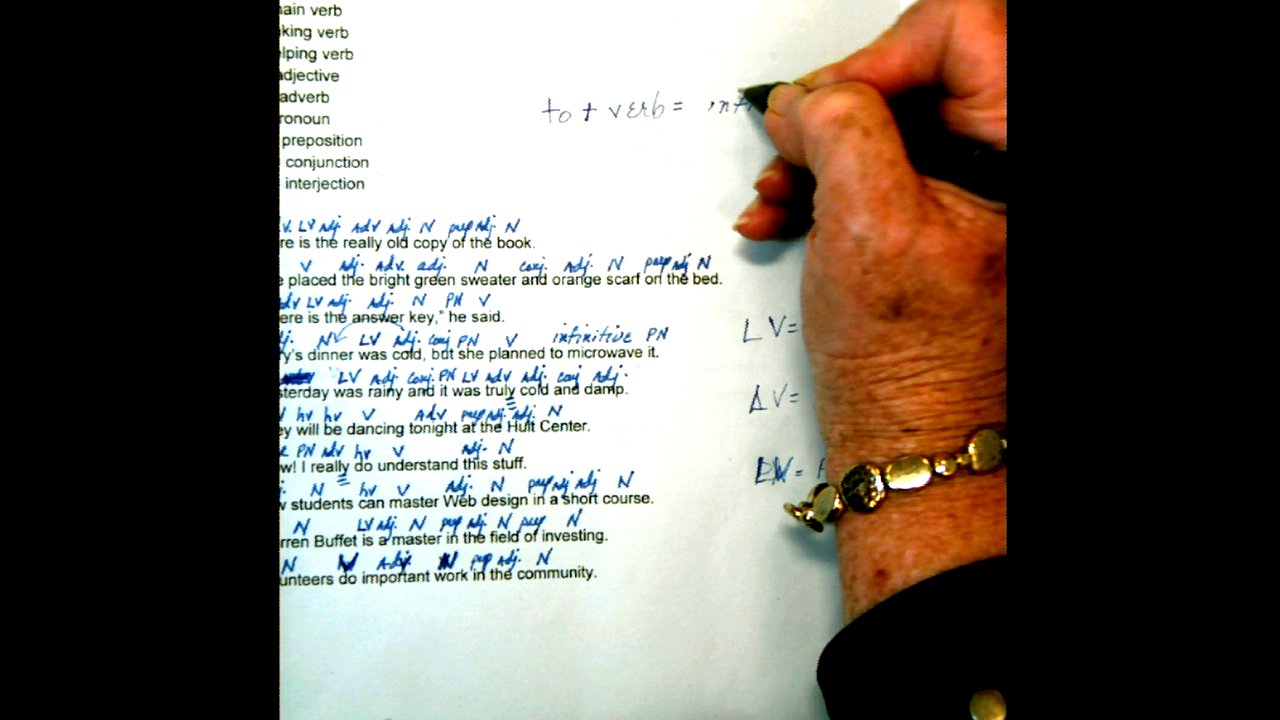 ain verb
king verb
elping verb
adjective
adverb
ronoun
preposition
conjunction
interjection
to + verb = inf
V. LV adj adv adj N prep adj N
re is the really old copy of the book.
V adj. adv. adj. N conj. adj. N prep adj N
e placed the bright green sweater and orange scarf on the bed.
adv LV adj. adj. N PN V
ere is the answer key," he said.
LV=
j. N LV adj. conj PN V infinitive PN
y's dinner was cold, but she planned to microwave it.
LV adj conj. PN LV adv adj. conj adj.
sterday was rainy and it was truly cold and damp.
AV=
hv hv V Adv prep adj. adj. N
ey will be dancing tonight at the Hult Center.
PN adv hv V adj. N
w! I really do understand this stuff.
N hv V Adj. N prep adj adj N
w students can master Web design in a short course.
N LV adj. N prep adj. N prep N
rren Buffet is a master in the field of investing.
N V Adj N prep adj. N
unteers do important work in the community.